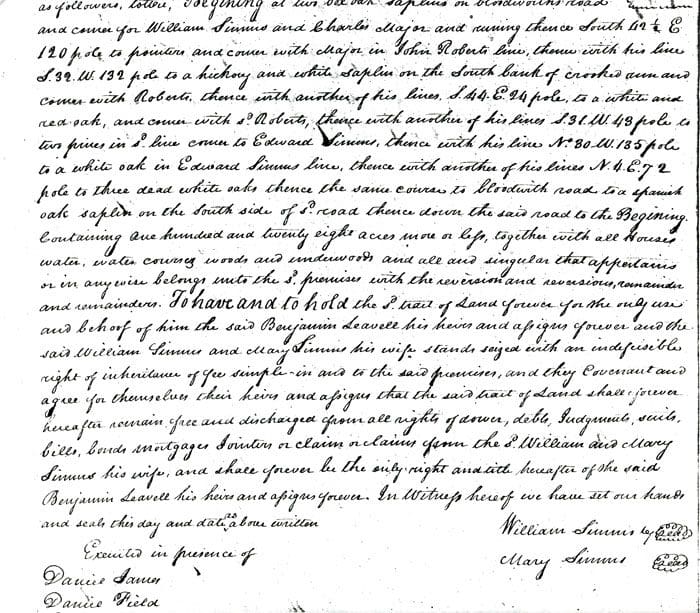 as follows, towit, Begining at two red oak saplins on bloodworths road
and corner for William Simms and Charles Major and runing thence South 42½ E
120 pole to pointers and corner with Major in John Roberts line, thence with his line
S. 32. W. 132 pole to a hickory and white saplin on the South bank of crooked arm and
corner with Roberts, thence with another of his lines, S. 44. E. 24 pole, to a white and
red oak, and corner with sd. Roberts, thence with another of his lines S. 31. W. 43 pole to
two pines in sd. line corner to Edward Simms, thence with his line No. 80. W. 135 pole
to a white oak in Edward Simms line, thence with another of his lines N. 4. E. 72
pole to three dead white oaks thence the same course to bloodwith road to a spanish
oak saplin on the South side of sd. road thence down the said road to the Begining.
Containing One hundred and twenty eight acres more or less, together with all Houses
water, water courses woods and underwoods and all and singular that appertains
or in anywise belongs unto the sd. premises with the reversion and reversions, remainder
and remainders. To have and to hold the sd. tract of Land forever for the only use
and behoof of him the said Benjamin Leavell his heirs and assigns forever and the
said William Simms and Mary Simms his wife stands seized with an indefisible
right of inheritance of fee simple in and to the said premises, and they Covenant and
agree for themselves their heirs and assigns that the said tract of Land shall forever
hereafter remain free and discharged from all rights of dower, debts, Judgments, suits,
bills, bonds mortgages Jointers or claim or claims from the sd. William and Mary
Simms his wife, and shall forever be the only right and titth hereafter of the said
Benjamin Leavell his heirs and assigns forever. In Witness hereof we have set our hands
and seals this day and date as above written
William Simms
Executed in presence of
Mary Simms
Daniel James
Daniel Field